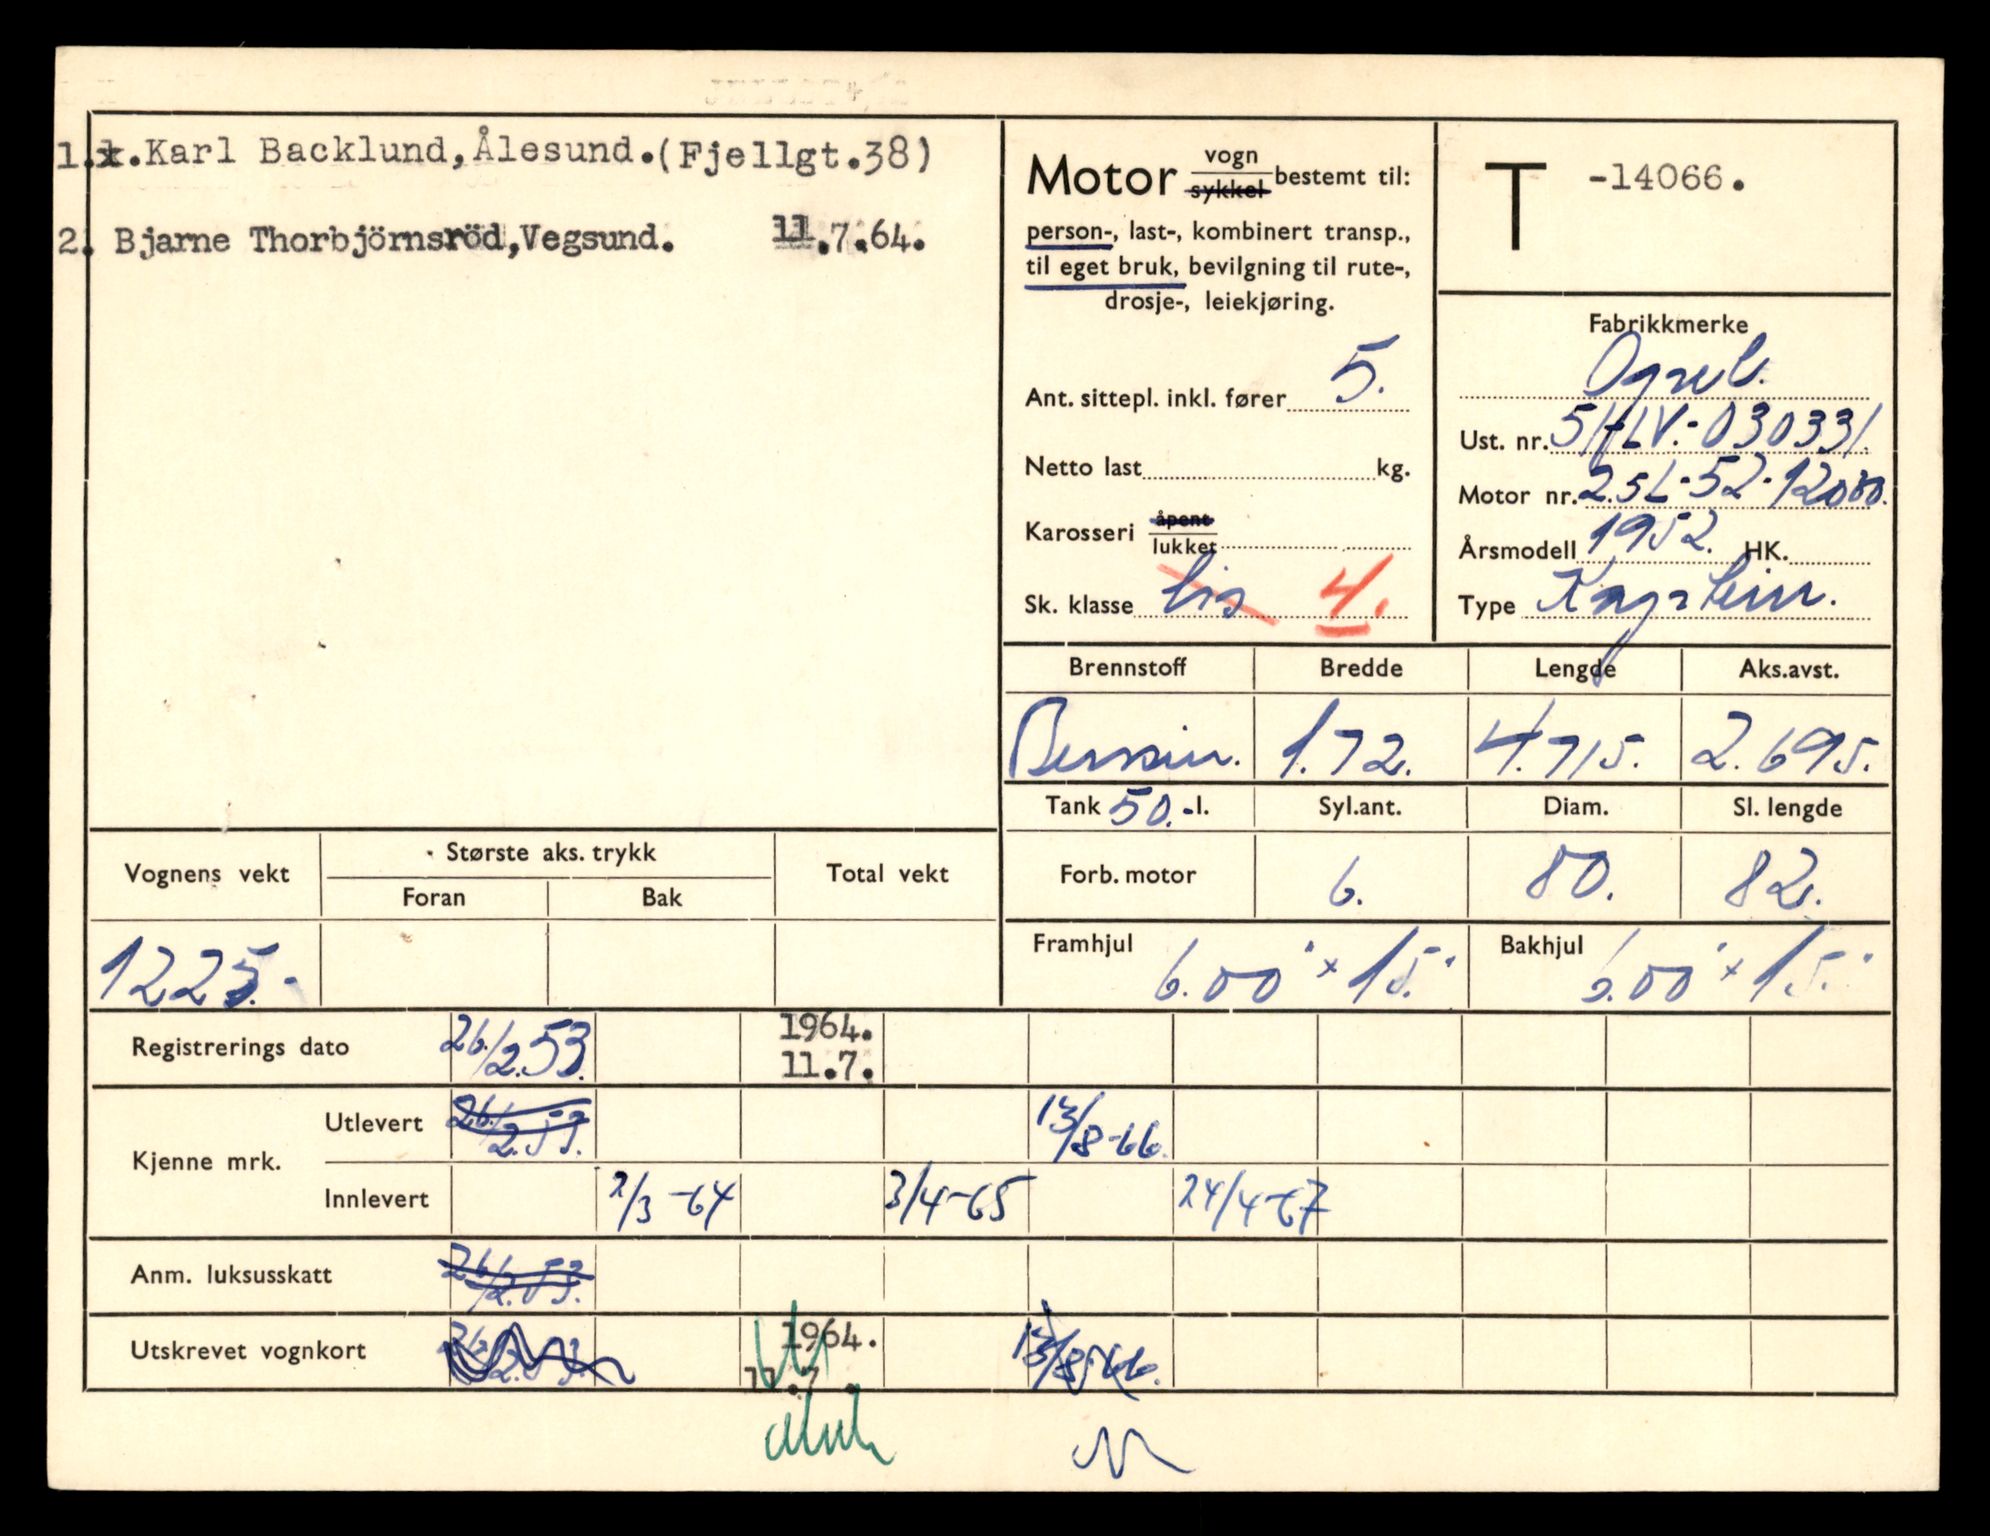 1. Karl Backlund, Ålesund. (Fjellgt.38)
2. Bjarne Thorbjörnsröd, Vegsund. 11.7.64.
Motor vogn sykkel bestemt til:
person-, last-, kombinert transp.,
til eget bruk, bevilgning til rute-,
drosje-, leiekjøring.
Ant. sittepl. inkl. fører 5.
Netto last kg.
Karosseri åpent lukket
Sk. klasse bis 4.
T -14066.
Fabrikkmerke
Opel.
Ust. nr.
Motor nr. 2.5L-52-
Årsmodell 1952. HK.
Type Kapitein.
Brennstoff Bredde Lengde Aks.avst.
Bensin. 1.72. 4.715. 2.695.
Tank 50.-l. Syl.ant. Diam. Sl. lengde
Forb. motor 6. 80. 82.
Framhjul 6.00" x 15." Bakhjul 6.00" x 15."
Vognens vekt Største aks. trykk Total vekt
Foran Bak
1225.-
Registrerings dato 26/2.53. 1964. 11.7.
Kjenne mrk. Utlevert 26/2.53. 13/8-66.
Innlevert 2/3-64 3/4-65 24/4-67
Anm. luksusskatt 26/2.53.
Utskrevet vognkort 26/2.53. 1964. 11.7. 13/8-66.